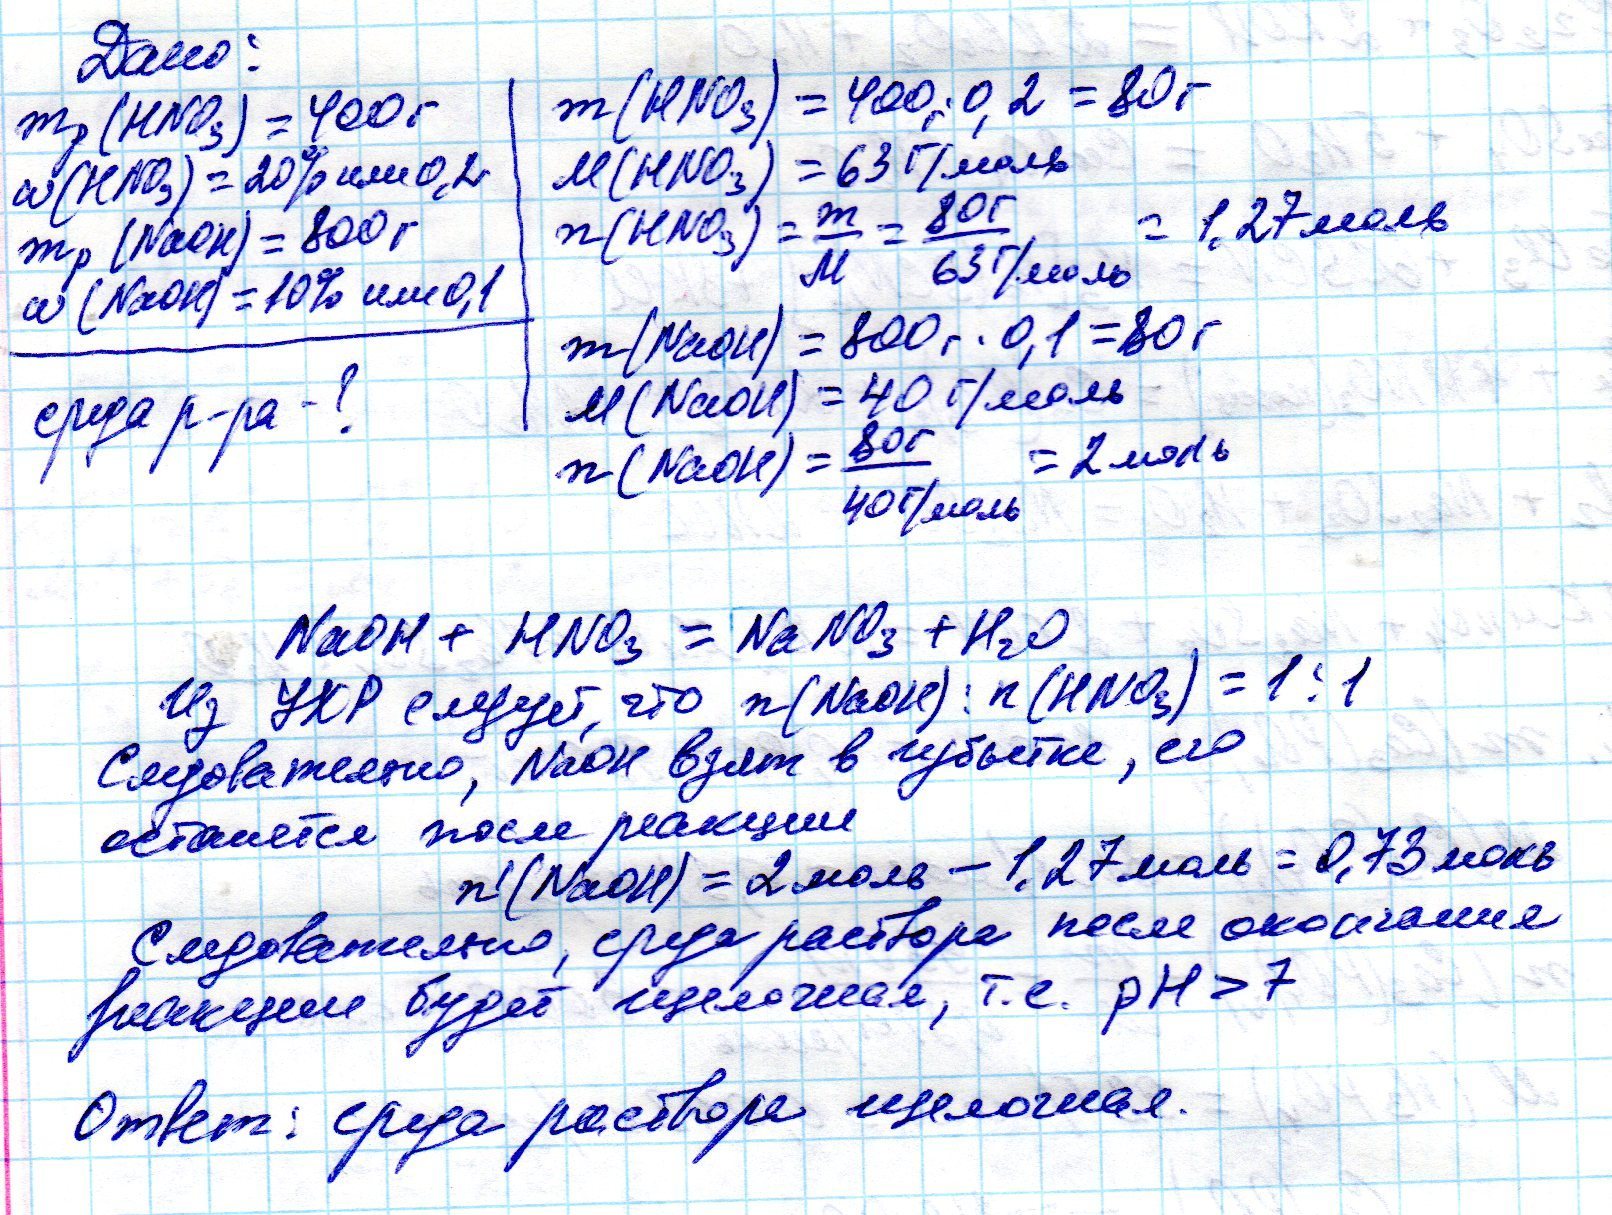 Дано:
mр(HNO₃) = 400г
ω(HNO₃) = 20% или 0,2
mр(NaOH) = 800г
ω(NaOH) = 10% или 0,1
среда р-ра - ?
m(HNO₃) = 400г·0,2 = 80г
M(HNO₃) = 63 г/моль
n(HNO₃) = m/M = 80г/63г/моль = 1,27 моль
m(NaOH) = 800г·0,1 = 80г
M(NaOH) = 40 г/моль
n(NaOH) = 80г/40г/моль = 2 моль
NaOH + HNO₃ = NaNO₃ + H₂O
Из УХР следует, что n(NaOH) : n(HNO₃) = 1:1
Следовательно, NaOH взят в избытке, его
останется после реакции
n'(NaOH) = 2 моль – 1,27 моль = 0,73 моль
Следовательно, среда раствора после окончания
реакции будет щелочная, т.е. pH > 7
Ответ: среда раствора щелочная.